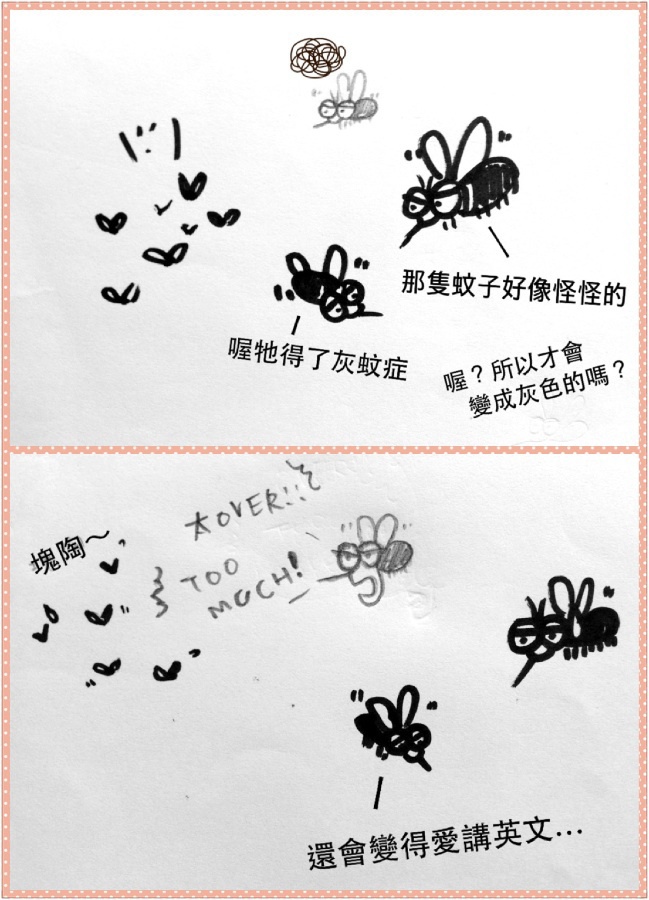 那隻蚊子好像怪怪的
喔牠得了灰蚊症
喔？所以才會
變成灰色的嗎？
太OVER!!
塊陶～
TOO
MUCH!
還會變得愛講英文...